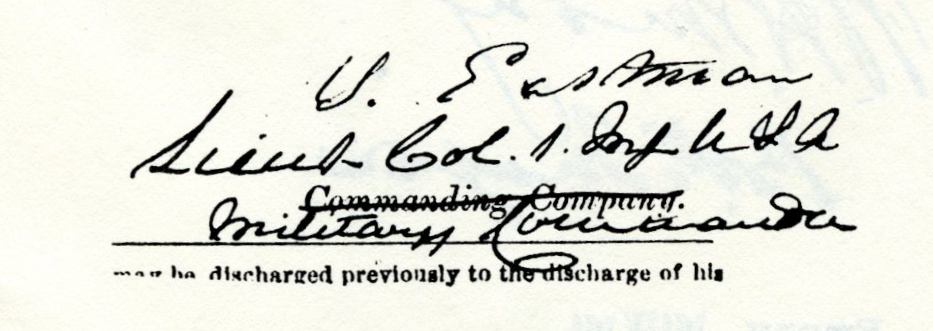 S. Eastman
Lieut Col. 1. Inf U S A
Commanding Company.
Military Commander
may be discharged previously to the discharge of his